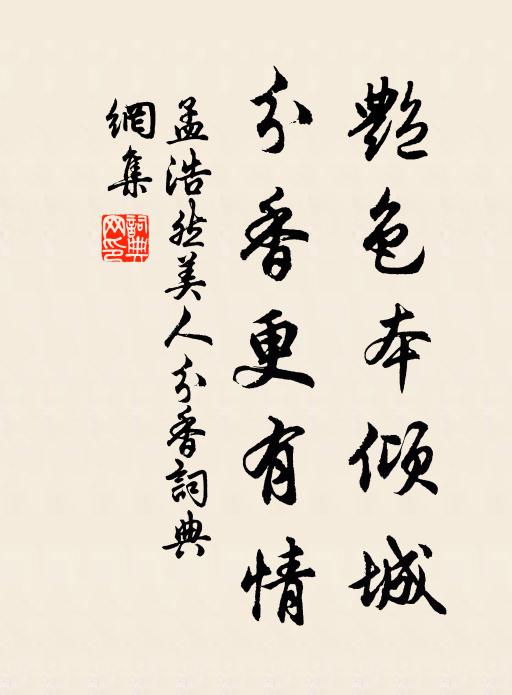 艷色本傾城
分香更有情
孟浩然美人分香詞典
網集
詞典
網印